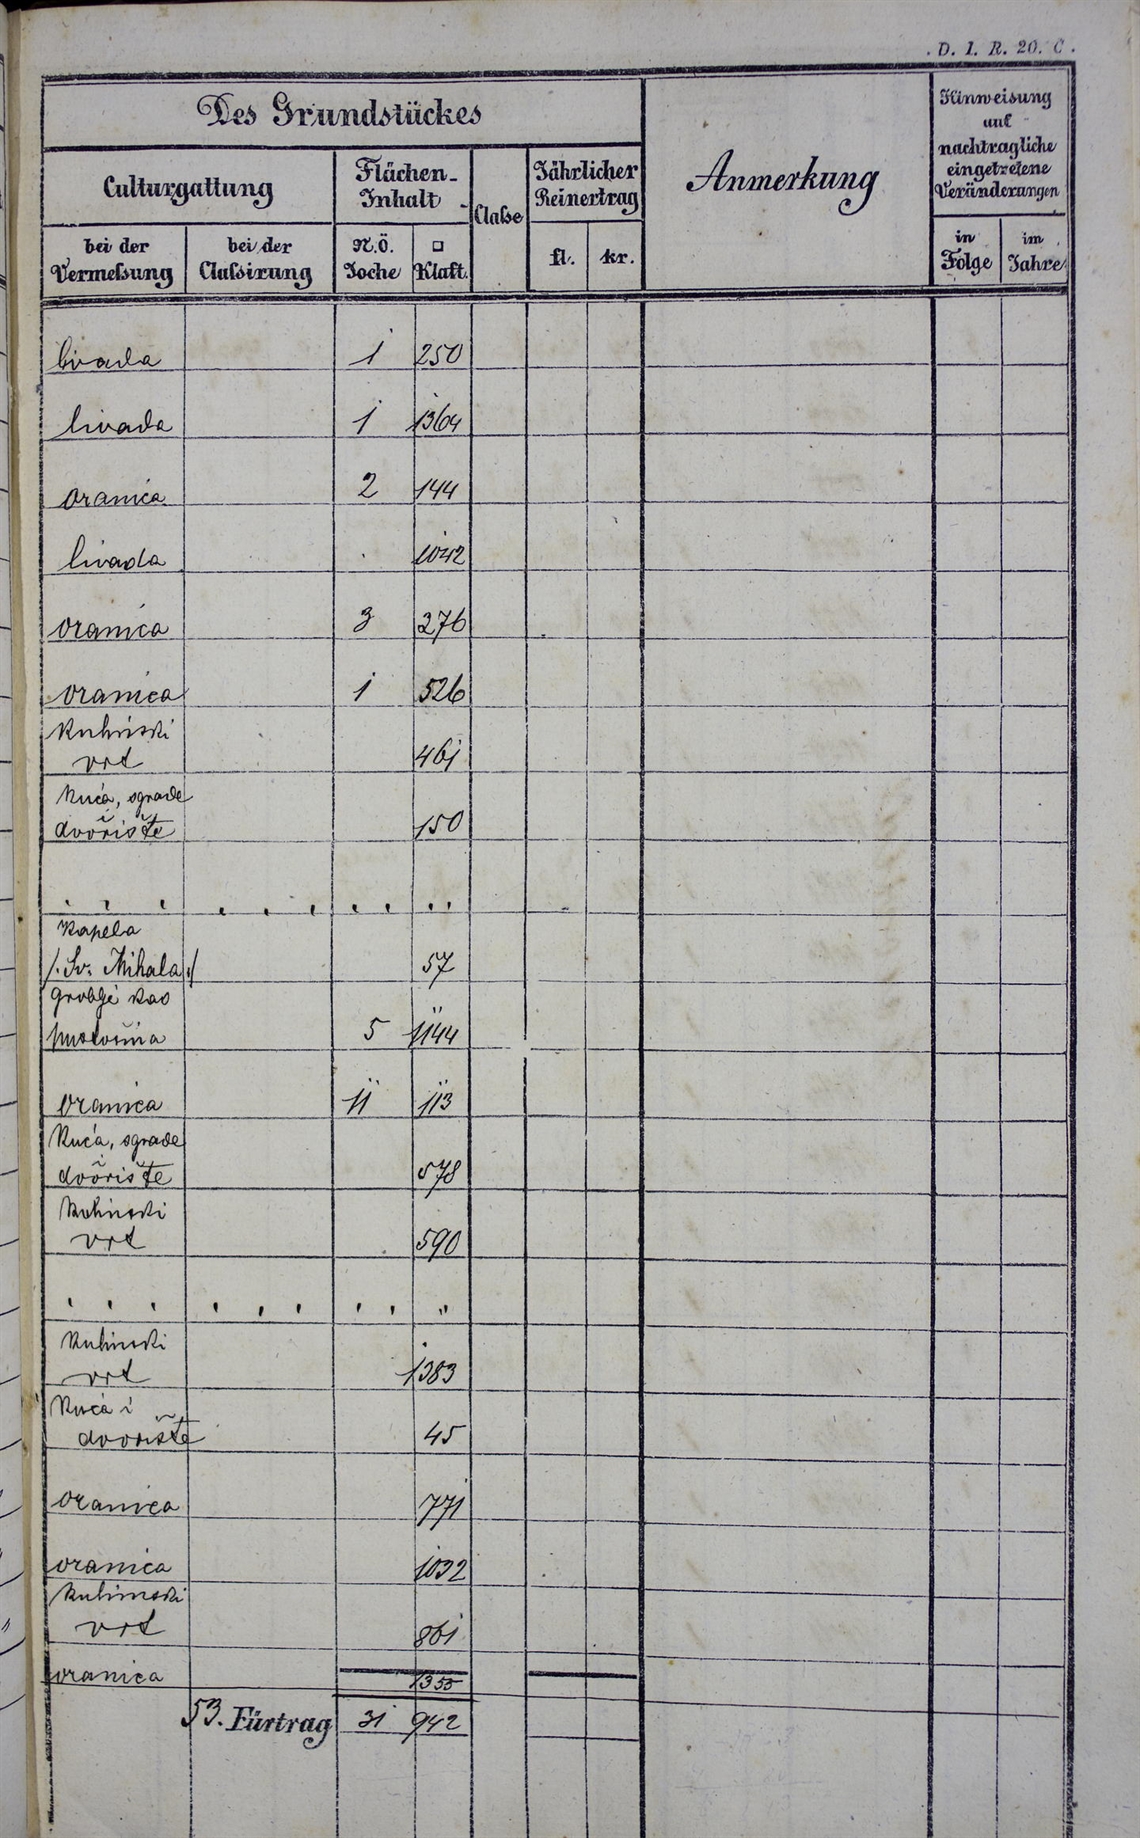 . D. 1. R. 20. C .
Des Grundstückes
Anmerkung
Hinweisung
auf
nachtragliche
eingetretene
Veränderungen
Culturgattung
Flächen-
Inhalt
Claße
Jährlicher
Reinertrag
bei der
Vermeßung
bei der
Claßirung
N.Ö.
Joche
□
Klaft.
fl.
kr.
in
Folge
im
Jahre
livada 1 250
livada 1 1364
oranica 2 144
livada . 1042
oranica 3 276
oranica 1 526
Kuhinski
vrt 461
Kuća, sgrade
i
dvorište 150
Kapela
/: Sv. Mihala :/ 57
groblje kao
pustošina 5 1144
oranica 11 113
Kuća, sgrade
i
dvorište 578
Kuhinski
vrt 590
Kuhinski
vrt 1383
Kuća i
dvorište 45
oranica 771
oranica 1032
Kuhinski
vrt 861
oranica 1355
53. Fürtrag 31 942